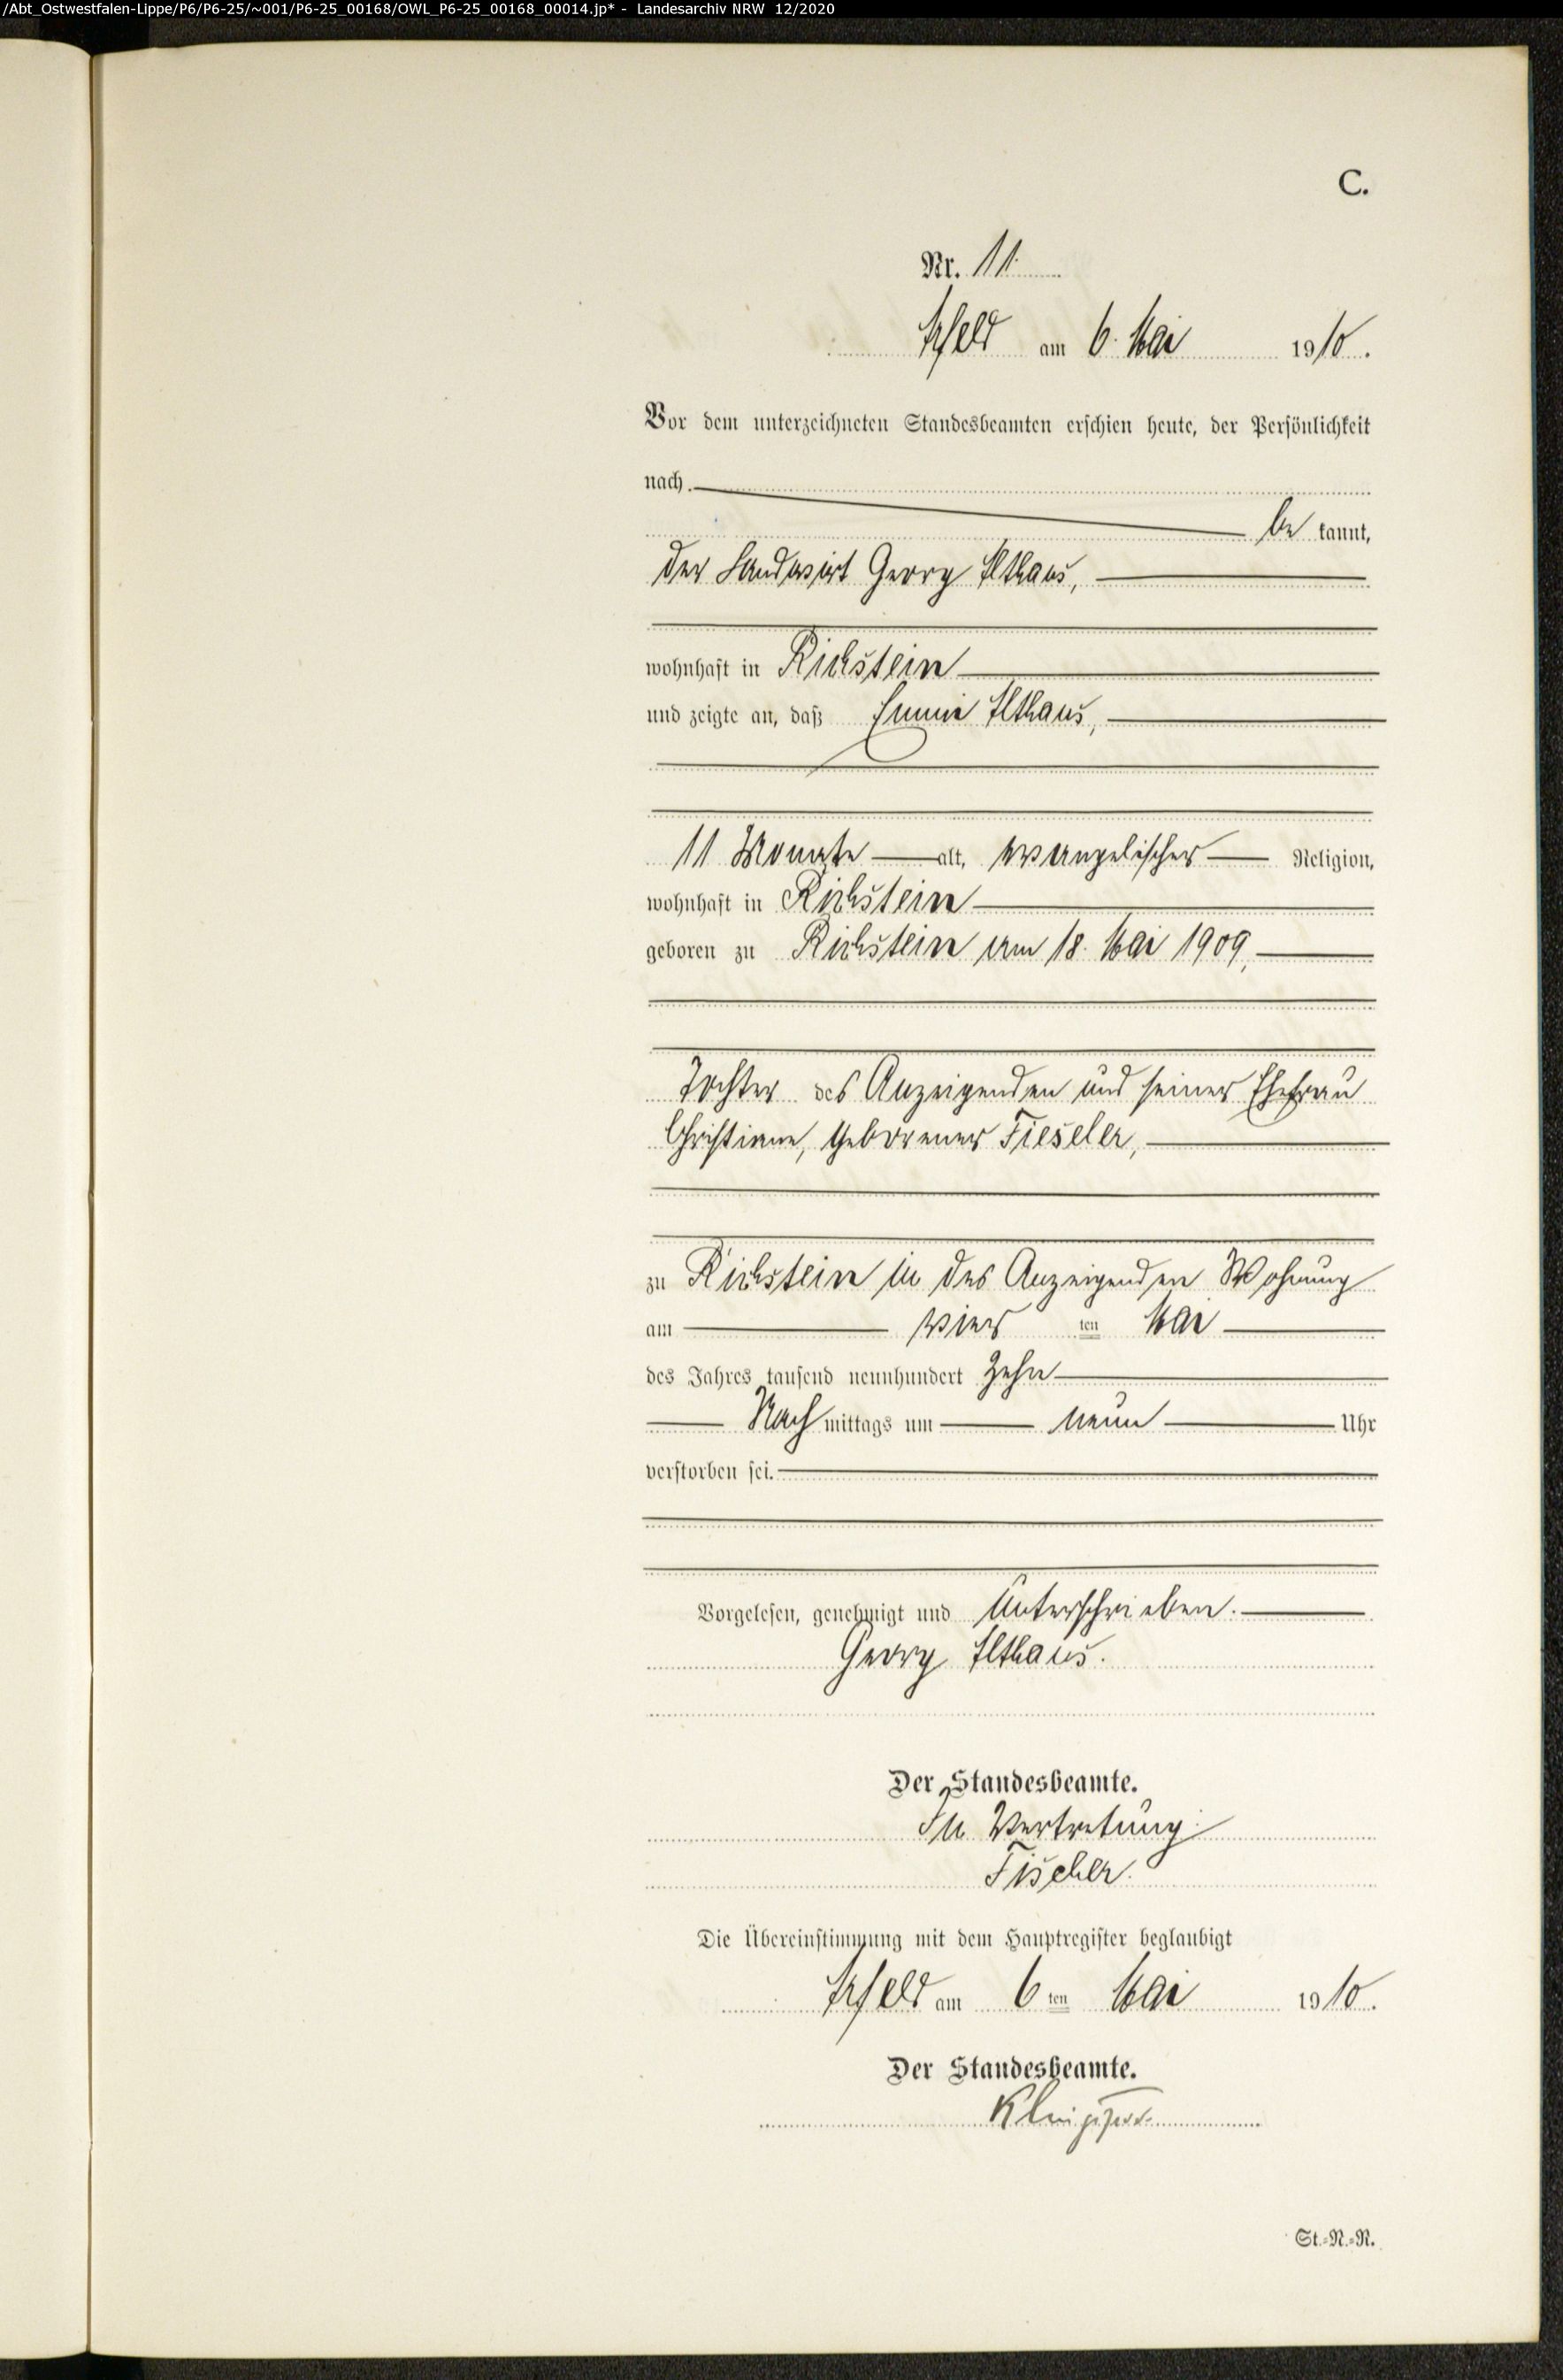 /Abt_Ostwestfalen-Lippe/P6/P6-25/~001/P6-25_00168/OWL_P6-25_00168_00014.jp* - Landesarchiv NRW 12/2020
C.
Nr. 11
Arfeld am 6. Mai 1910.
Vor dem unterzeichneten Standesbeamten erschien heute, der Persönlichkeit
nach
be kannt,
der Landwirt Georg Althaus,
wohnhaft in Richstein
und zeigte an, daß Emmi Althaus,
11 Monate alt, evangelischer Religion,
wohnhaft in Richstein
geboren zu Richstein am 18. Mai 1909,
Tochter des Anzeigenden und seiner Ehefrau
Christiane, geborener Fieseler,
zu Richstein in des Anzeigenden Wohnung
am vier ten Mai
des Jahres tausend neunhundert zehn
Nach mittags um neun Uhr
verstorben sei.
Vorgelesen, genehmigt und unterschrieben.
Georg Althaus.
Der Standesbeamte.
In Vertretung
Fischer.
Die Übereinstimmung mit dem Hauptregister beglaubigt
Arfeld am 6 ten Mai 1910.
Der Standesbeamte.
St.-N.-R.